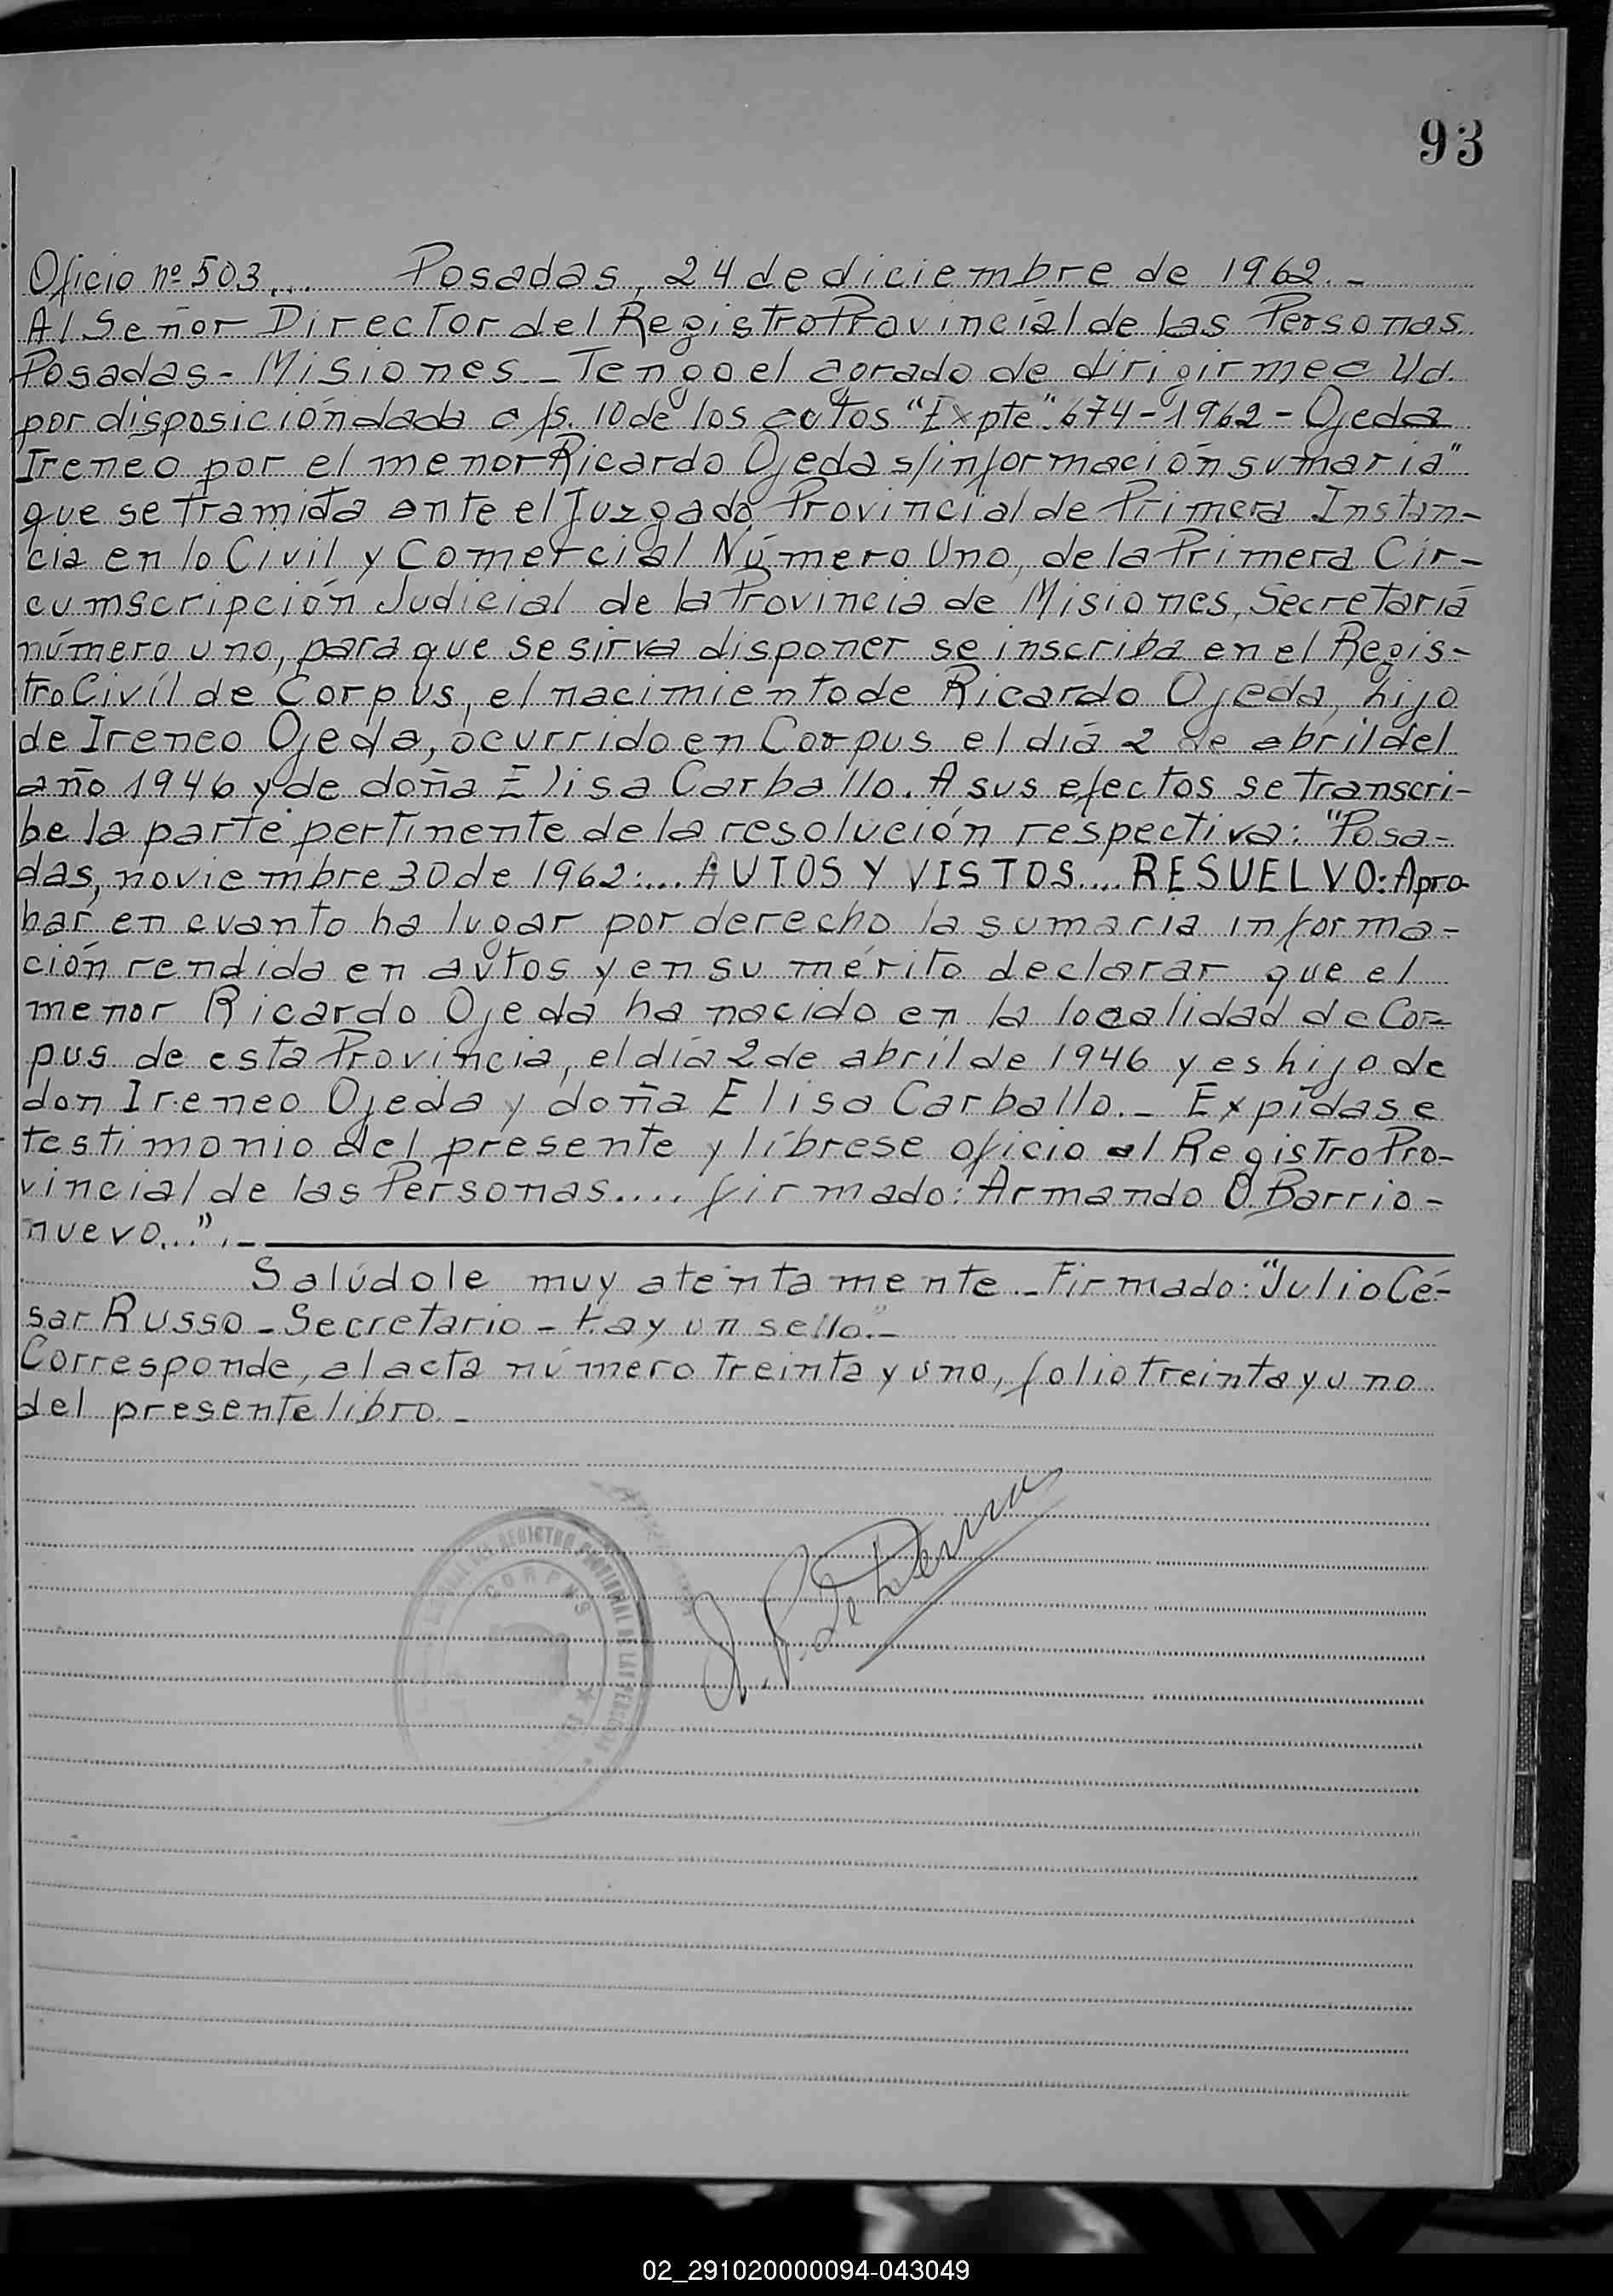 93
Oficio nº 503... Posadas, 24 de diciembre de 1962.-
Al Señor Director del Registro Provincial de las Personas.
Posadas - Misiones.- Tengo el agrado de dirigirme a Ud.
por disposición dada a fs. 10 de los autos "Expte". 674-1962 - Ojeda
Ireneo por el menor Ricardo Ojeda s/información sumaria"
que se tramita ante el Juzgado Provincial de Primera Instan-
cia en lo Civil y Comercial Número Uno, de la Primera Cir-
cumscripción Judicial de la Provincia de Misiones, Secretaría
número uno, para que se sirva disponer se inscriba en el Regis-
tro Civil de Corpus, el nacimiento de Ricardo Ojeda, hijo
de Ireneo Ojeda, ocurrido en Corpus el día 2 de abril del
año 1946 y de doña Elisa Carballo. A sus efectos se transcri-
be la parte pertinente de la resolución respectiva: "Posa-
das, noviembre 30 de 1962:... AUTOS Y VISTOS.... RESUELVO: Apro-
bar en cuanto ha lugar por derecho la sumaria informa-
ción rendida en autos y en su mérito declarar que el
menor Ricardo Ojeda ha nacido en la localidad de Cor-
pus de esta Provincia, el día 2 de abril de 1946 y es hijo de
don Ireneo Ojeda y doña Elisa Carballo.- Expídase
testimonio del presente y líbrese oficio al Registro Pro-
vincial de las Personas.... firmado: Armando O. Barrio-
nuevo...".-
Salúdole muy atentamente.- Firmado: "Julio Cé-
sar Russo - Secretario - Hay un sello."-
Corresponde, al acta número treinta y uno, folio treinta y uno
del presente libro.-
REGISTRO PROVINCIAL DE LAS PERSONAS
CORPUS
02_291020000094-043049